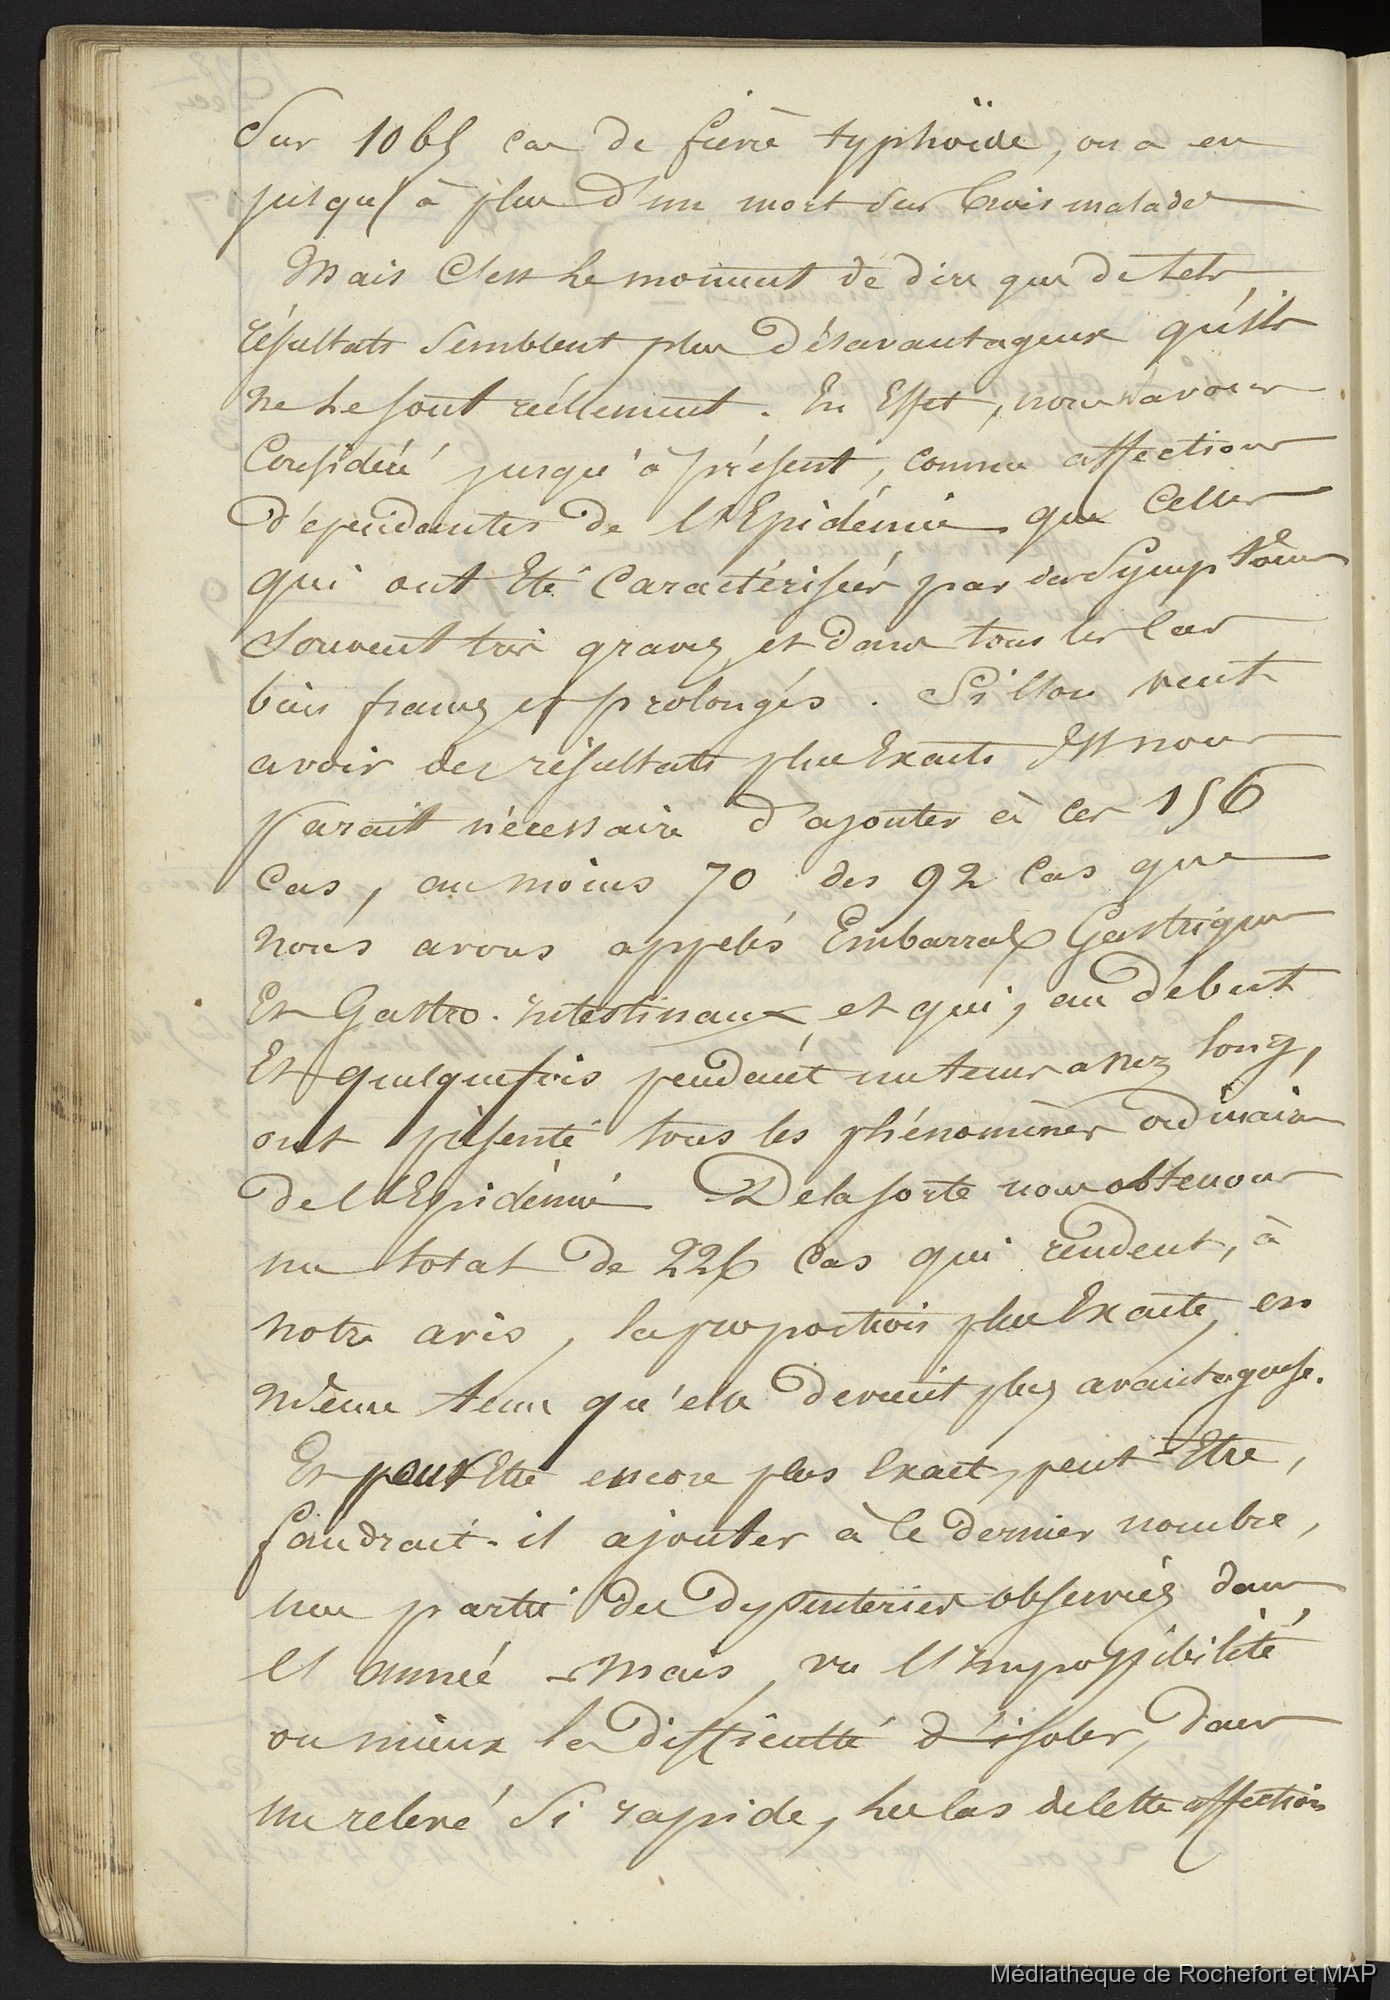 Sur 1065 cas de fièvre typhoïde, on a eu
jusqu'à plus d'un mort sur trois malades
Mais C'est le moment de dire que de tels
résultats semblent plus désavantageux qu'ils
ne le sont réellement. En Effet, nous n'avons
Considéré jusqu'à présent, comme affections
dépendantes de l'Epidémie que Celles
qui ont Eté Caractérisées par des Symptômes
Souvent très graves et dans tous les Cas
bien francs et prolongés. Si l'on veut
avoir des résultats plus Exacts Il nous
parait nécessaire d'ajouter à Ces 156
Cas, au moins 70 des 92 Cas que
nous avons appelés Embarras Gastriques
Et Gastro-intestinaux et qui, au début
Et quelquefois pendant un tems assez long,
ont présenté tous les phénomènes ordinaires
de l'Epidémie De la sorte nous obtenons
un total de 226 Cas qui rendent, à
notre avis, la proportion plus Exacte, en
même tems qu'elle devient plus avantageuse.
Et pour Etre encore plus Exact, peut-Etre,
faudrait-il ajouter à Ce dernier nombre,
une partie des dyssenteries observées dans
l'année - Mais, vu l'impossibilité
ou mieux la difficulté d'isoler, dans
un relevé Si rapide, les Cas de Cette affection
Médiathèque de Rochefort et MAP